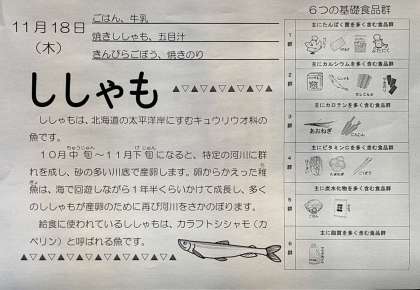 11月18日
(木)
ごはん、牛乳
焼きししゃも、五目汁
きんぴらごぼう、焼きのり
ししゃも
ししゃもは、北海道の太平洋岸にすむキュウリウオ科の
魚です。
10月中旬～11月下旬になると、特定の河川に群
れを成し、砂の多い川底で産卵します。卵からかえった稚
魚は、海で回遊しながら1年半くらいかけて成長し、多く
のししゃもが産卵のために再び河川をさかのぼります。
給食に使われているししゃもは、カラフトシシャモ(カ
ペリン)と呼ばれる魚です。
6つの基礎食品群
1群
主にたんぱく質を多く含む食品群
2群
主にカルシウムを多く含む食品群
3群
主にカロテンを多く含む食品群
あおねぎ
にんじん
4群
主にビタミンCを多く含む食品群
5群
主に炭水化物を多く含む食品群
6群
主に脂質を多く含む食品群